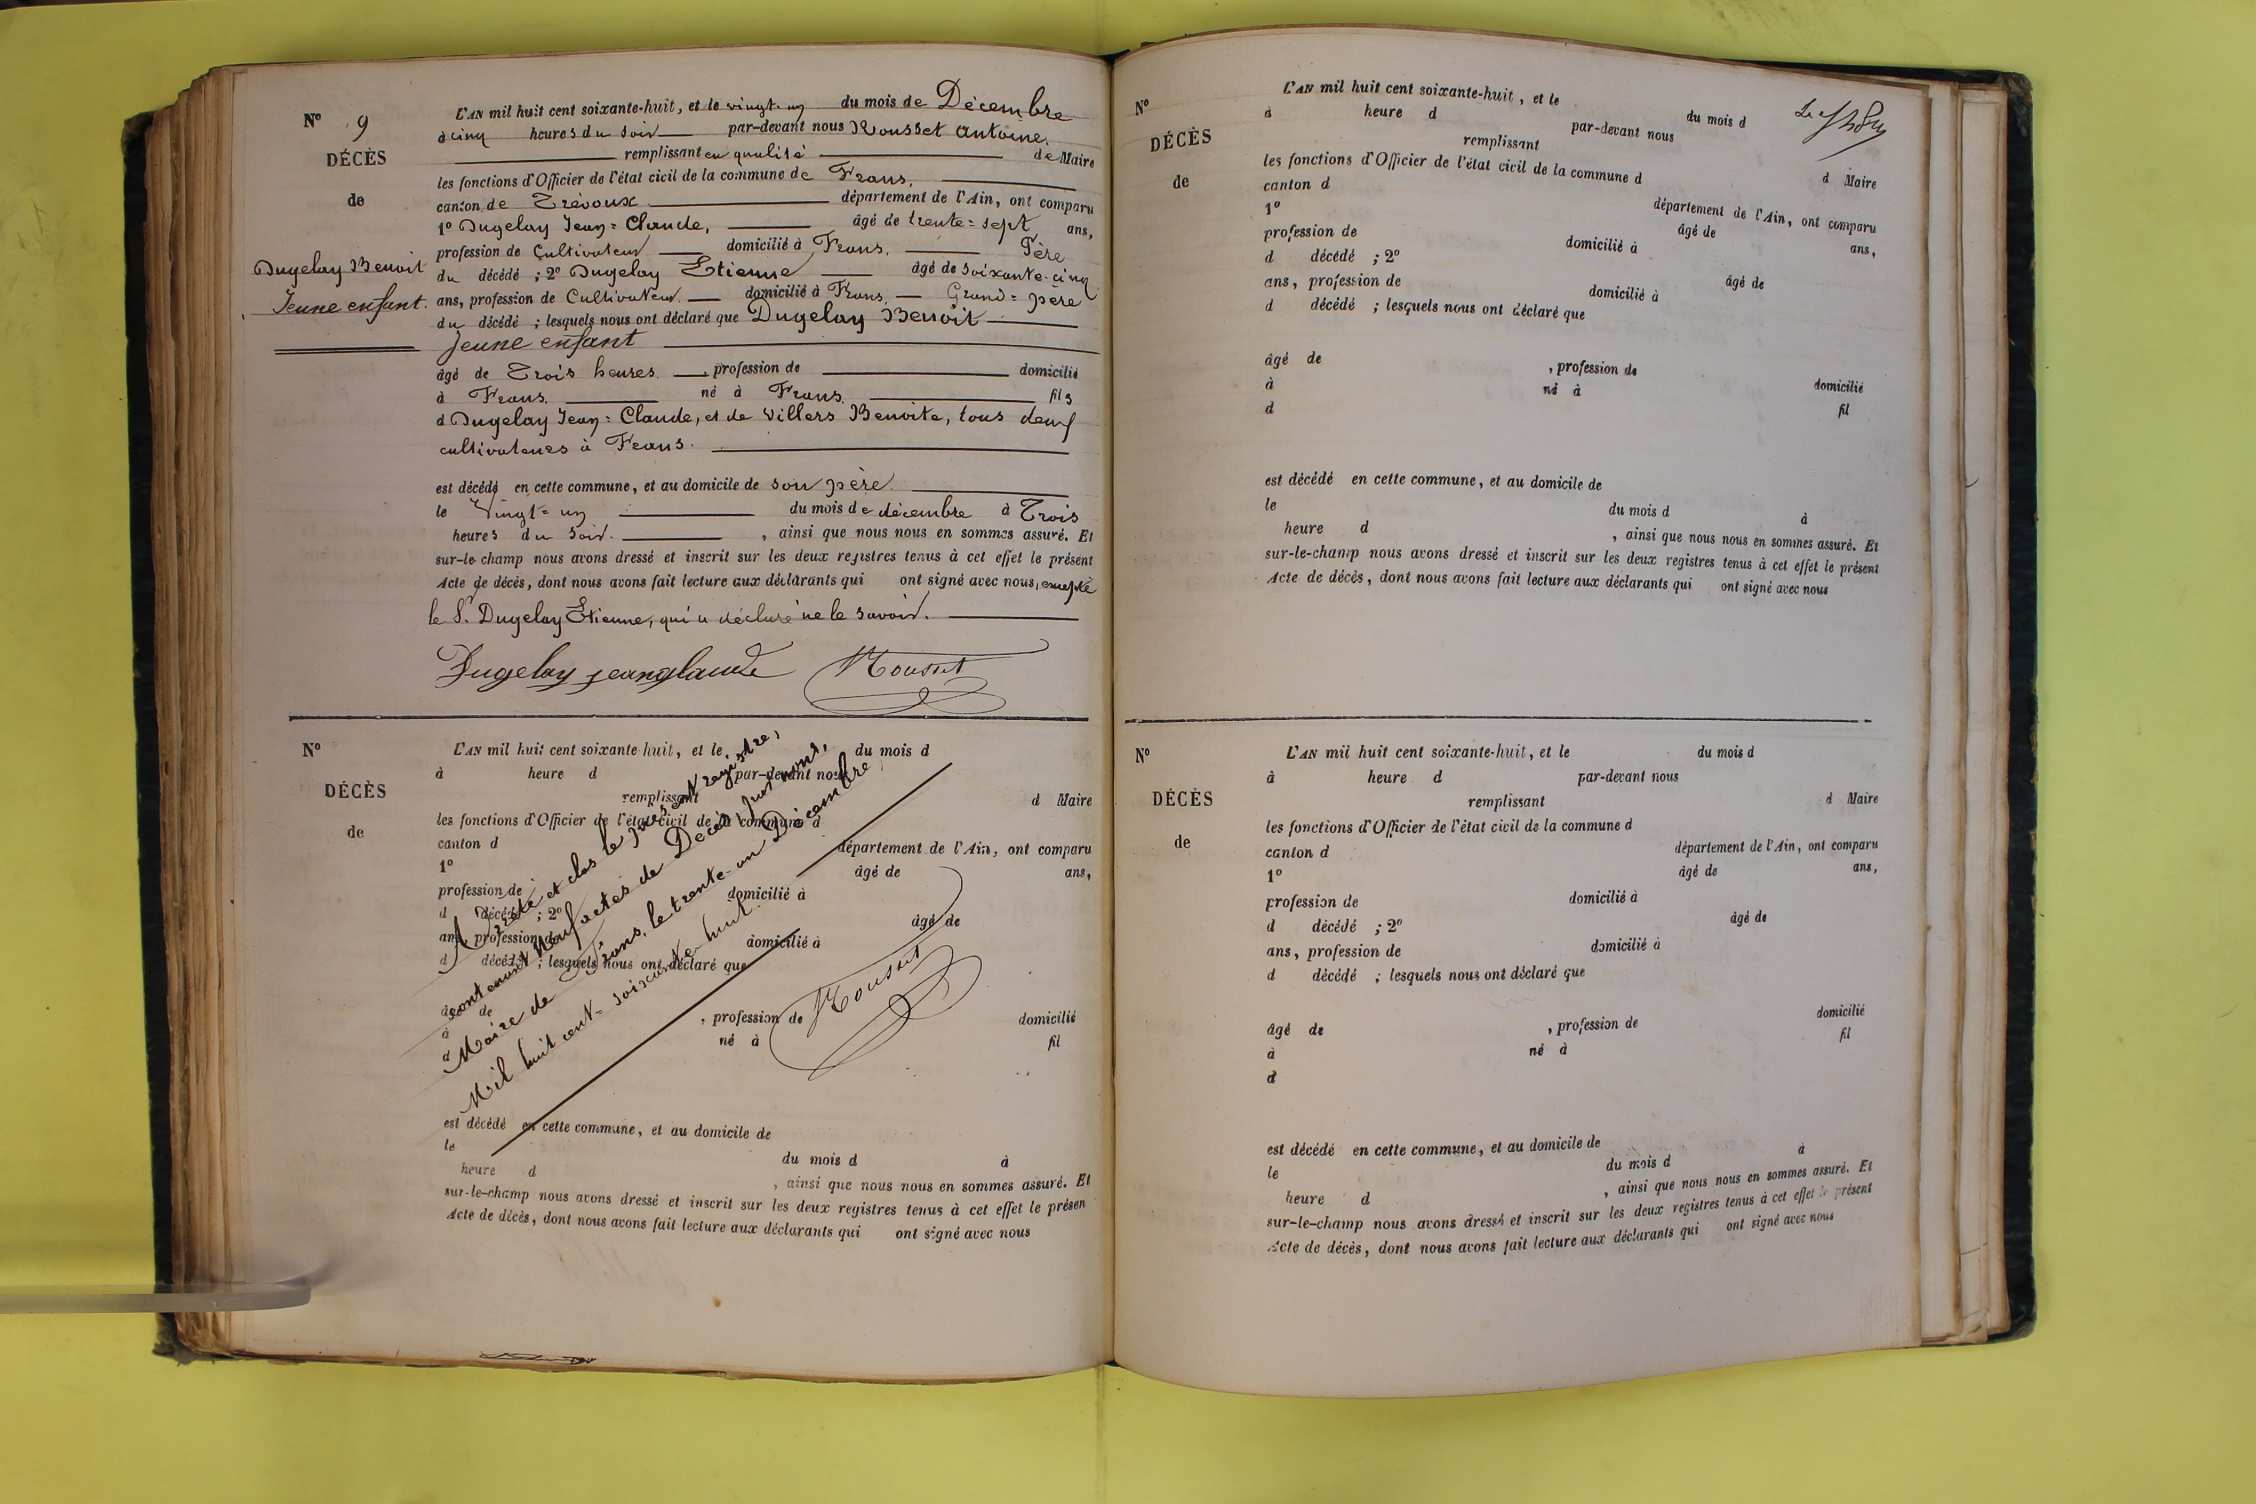 N° 9
DÉCÈS
de
Dugelay Benoit
Jeune enfant.
L'AN mil huit cent soixante-huit, et le vingt-un du mois de Décembre
à cinq heures du soir par-devant nous Rousset Antoine,
remplissant en qualité de Maire
les fonctions d'Officier de l'état civil de la commune de Frans,
canton de Trévoux département de l'Ain, ont comparu
1° Dugelay Jean=Claude, âgé de trente=sept ans,
profession de Cultivateur domicilié à Frans, Père
du décédé ; 2° Dugelay Etienne âgé de soixante-cinq
ans, profession de Cultivateur domicilié à Frans, Grand=père
du décédé ; lesquels nous ont déclaré que Dugelay Benoit
jeune enfant
âgé de Trois heures , profession de domicilié
à Frans, né à Frans, fils
d Dugelay Jean=Claude, et de Villers Benoite, tous deux
cultivateurs à Frans.
est décédé en cette commune, et au domicile de son père
le Vingt=un du mois de décembre à Trois
heures du soir. , ainsi que nous nous en sommes assuré. Et
sur-le-champ nous avons dressé et inscrit sur les deux registres tenus à cet effet le présent
Acte de décès, dont nous avons fait lecture aux déclarants qui ont signé avec nous, excepté
le S. Dugelay Etienne, qui a déclaré ne le savoir.
Dugelay jeanglaude Rousset
N°
DÉCÈS
de
L'AN mil huit cent soixante-huit, et le du mois d
à heure d par-devant nous
remplissant d Maire
les fonctions d'Officier de l'état civil de la commune d
canton d département de l'Ain, ont comparu
1° âgé de ans,
profession de domicilié à
d décédé ; 2° âgé de
ans, profession de domicilié à
d décédé ; lesquels nous ont déclaré que
âgé de , profession de domicilié
à né à fil
d
est décédé en cette commune, et au domicile de
le du mois d à
heure d , ainsi que nous nous en sommes assuré. Et
sur-le-champ nous avons dressé et inscrit sur les deux registres tenus à cet effet le présen
Acte de décès, dont nous avons fait lecture aux déclarants qui ont signé avec nous
Arrêté et clos le présent registre,
contenant Neuf actes de Décès, par nous,
Maire de Frans, le trente-un Décembre
Mil huit cent=soixante-huit.
Rousset
N°
DÉCÈS
de
L'AN mil huit cent soixante-huit, et le du mois d
à heure d par-devant nous
remplissant d Maire
les fonctions d'Officier de l'état civil de la commune d
canton d département de l'Ain, ont comparu
1° âgé de ans,
profession de domicilié à
d décédé ; 2° âgé de
ans, profession de domicilié à
d décédé ; lesquels nous ont déclaré que
âgé de , profession de domicilié
à né à fil
d
est décédé en cette commune, et au domicile de
le du mois d à
heure d , ainsi que nous nous en sommes assuré. Et
sur-le-champ nous avons dressé et inscrit sur les deux registres tenus à cet effet le présent
Acte de décès, dont nous avons fait lecture aux déclarants qui ont signé avec nous
N°
DÉCÈS
de
L'AN mil huit cent soixante-huit, et le du mois d
à heure d par-devant nous
remplissant d Maire
les fonctions d'Officier de l'état civil de la commune d
canton d département de l'Ain, ont comparu
1° âgé de ans,
profession de domicilié à
d décédé ; 2° âgé de
ans, profession de domicilié à
d décédé ; lesquels nous ont déclaré que
âgé de , profession de domicilié
à né à fil
d
est décédé en cette commune, et au domicile de
le du mois d à
heure d , ainsi que nous nous en sommes assuré. Et
sur-le-champ nous avons dressé et inscrit sur les deux registres tenus à cet effet le présent
Acte de décès, dont nous avons fait lecture aux déclarants qui ont signé avec nous